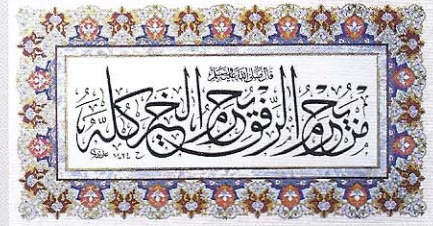 قال صلى الله عليه وسلم
من يحرم الرفق يحرم الخير كله